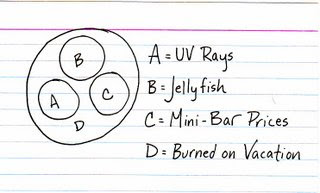 B
A
C
D
A = UV Rays
B = Jellyfish
C = Mini-Bar Prices
D = Burned on Vacation